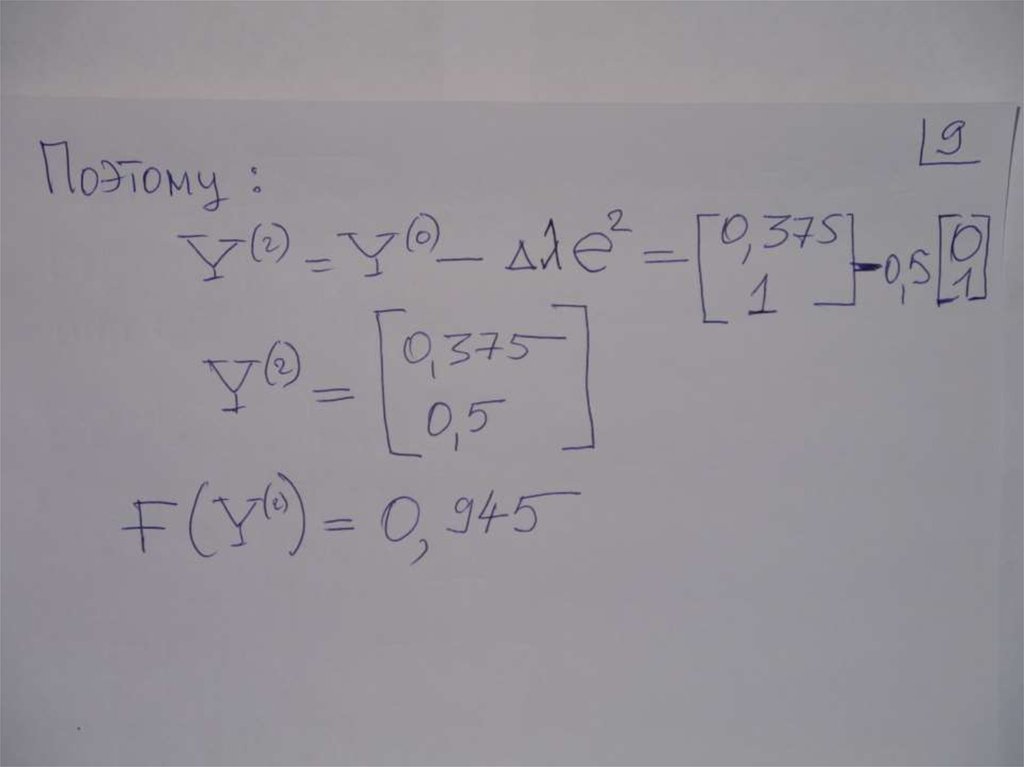 9
Поэтому:
Y⁽²⁾ = Y⁽⁰⁾ − Δλe² = [0,375 1] − 0,5 [0 1]
Y⁽²⁾ = [0,375 0,5]
F(Y⁽⁰⁾) = 0,945